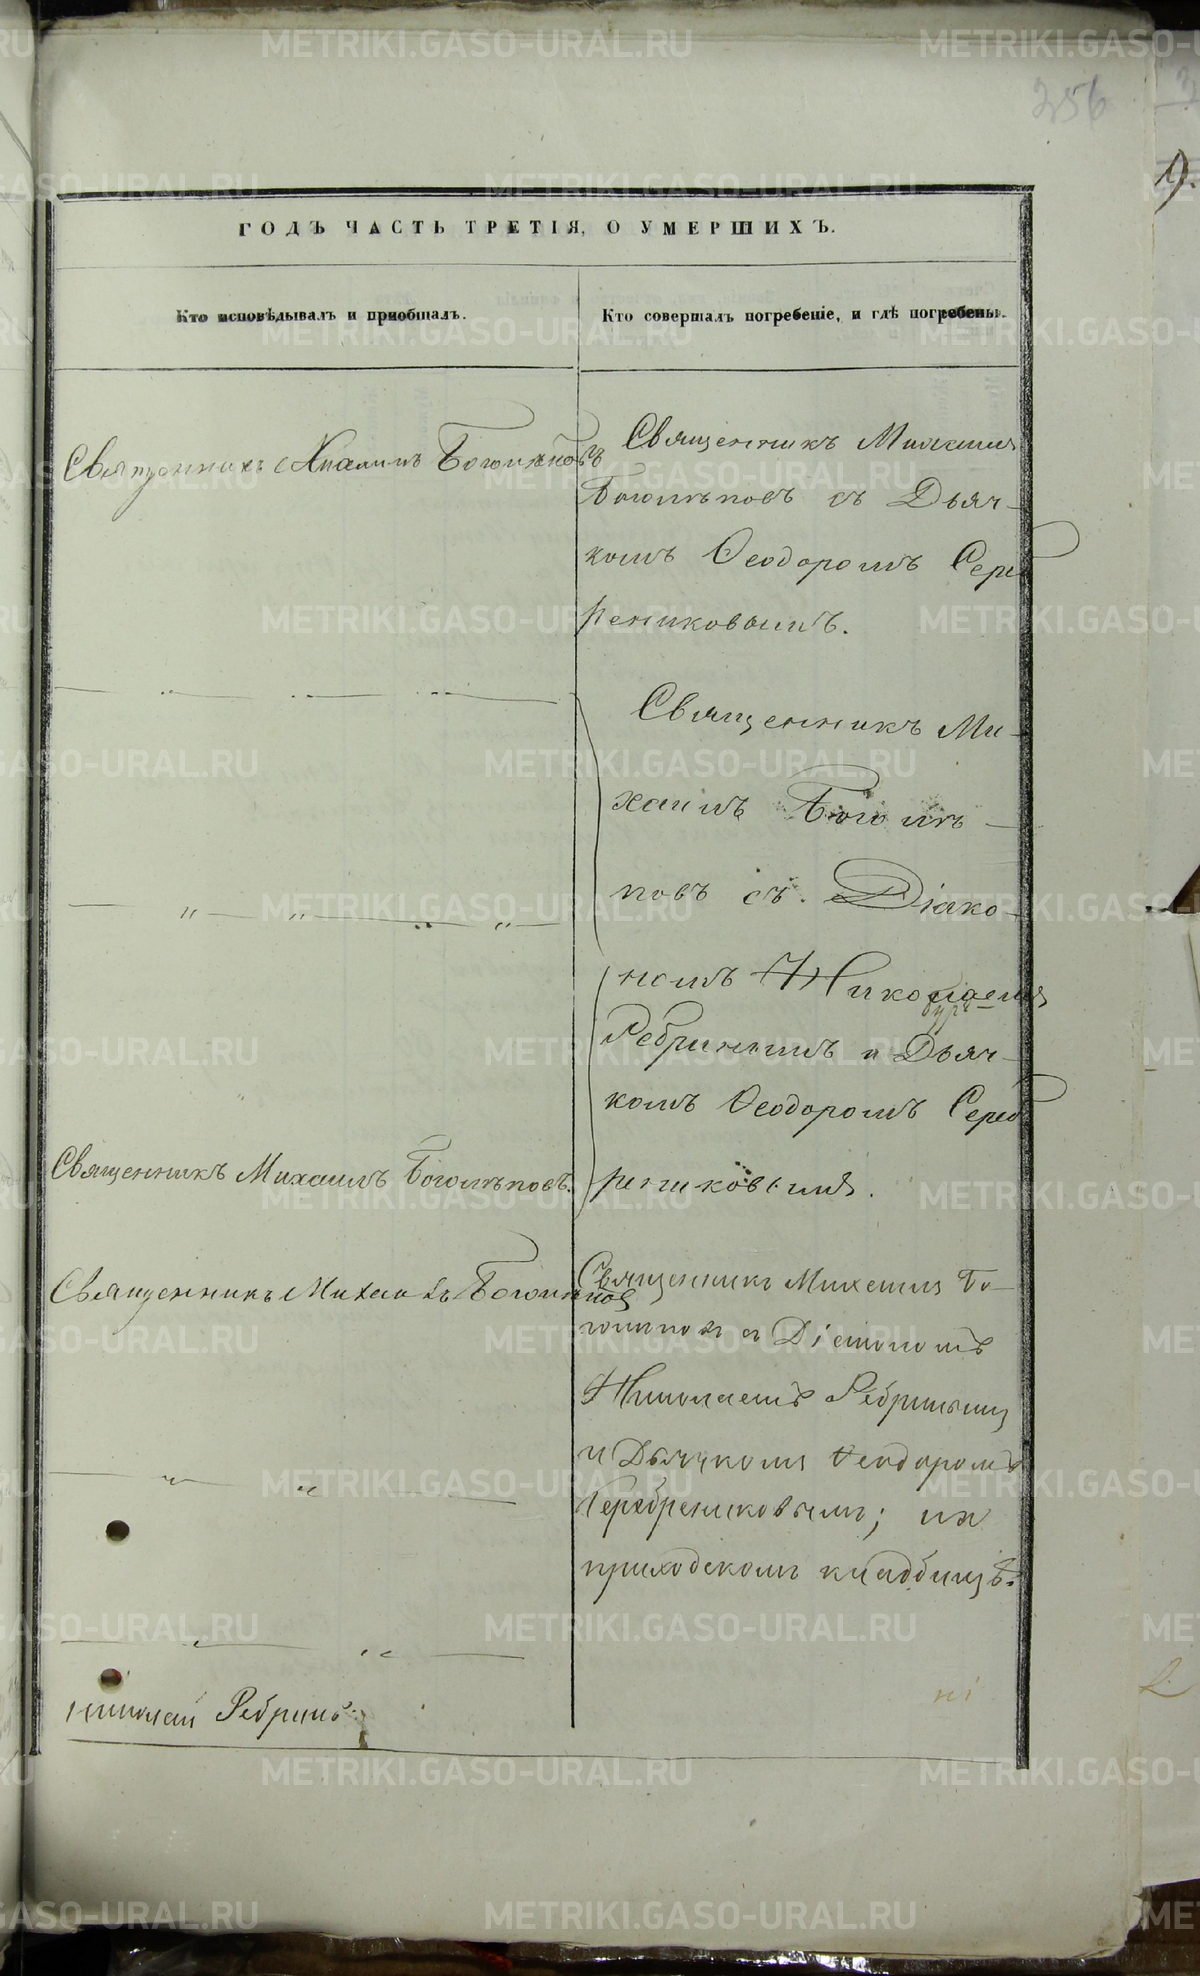 256
9.
ГОДЪ ЧАСТЬ ТРЕТІЯ, О УМЕРШИХЪ.
Кто исповѣдывалъ и пріобщалъ.
Кто совершалъ погребеніе, и гдѣ погребены.
Священникъ Михаилъ Боголѣповъ
Священникъ Михаилъ
Боголѣповъ съ Дьяч-
комъ Ѳеодоромъ Сереб
рениковымъ.
Священникъ Ми-
хаилъ Боголѣ-
повъ съ Діако-
номъ Николаемъ
Ребринымъ и Дьяч-
комъ Ѳеодоромъ Сереб
рениковымъ.
Священникъ Михаилъ Боголѣповъ.
Священникъ Михаилъ Боголѣповъ
Священникъ Михаилъ Бо-
голѣповъ съ Діакономъ
Николаемъ Ребринымъ
и Дьячкомъ Ѳеодоромъ
Серебрениковымъ; на
приходскомъ кладбищѣ.
Николай Ребринъ.
METRIKI.GASO-URAL.RU